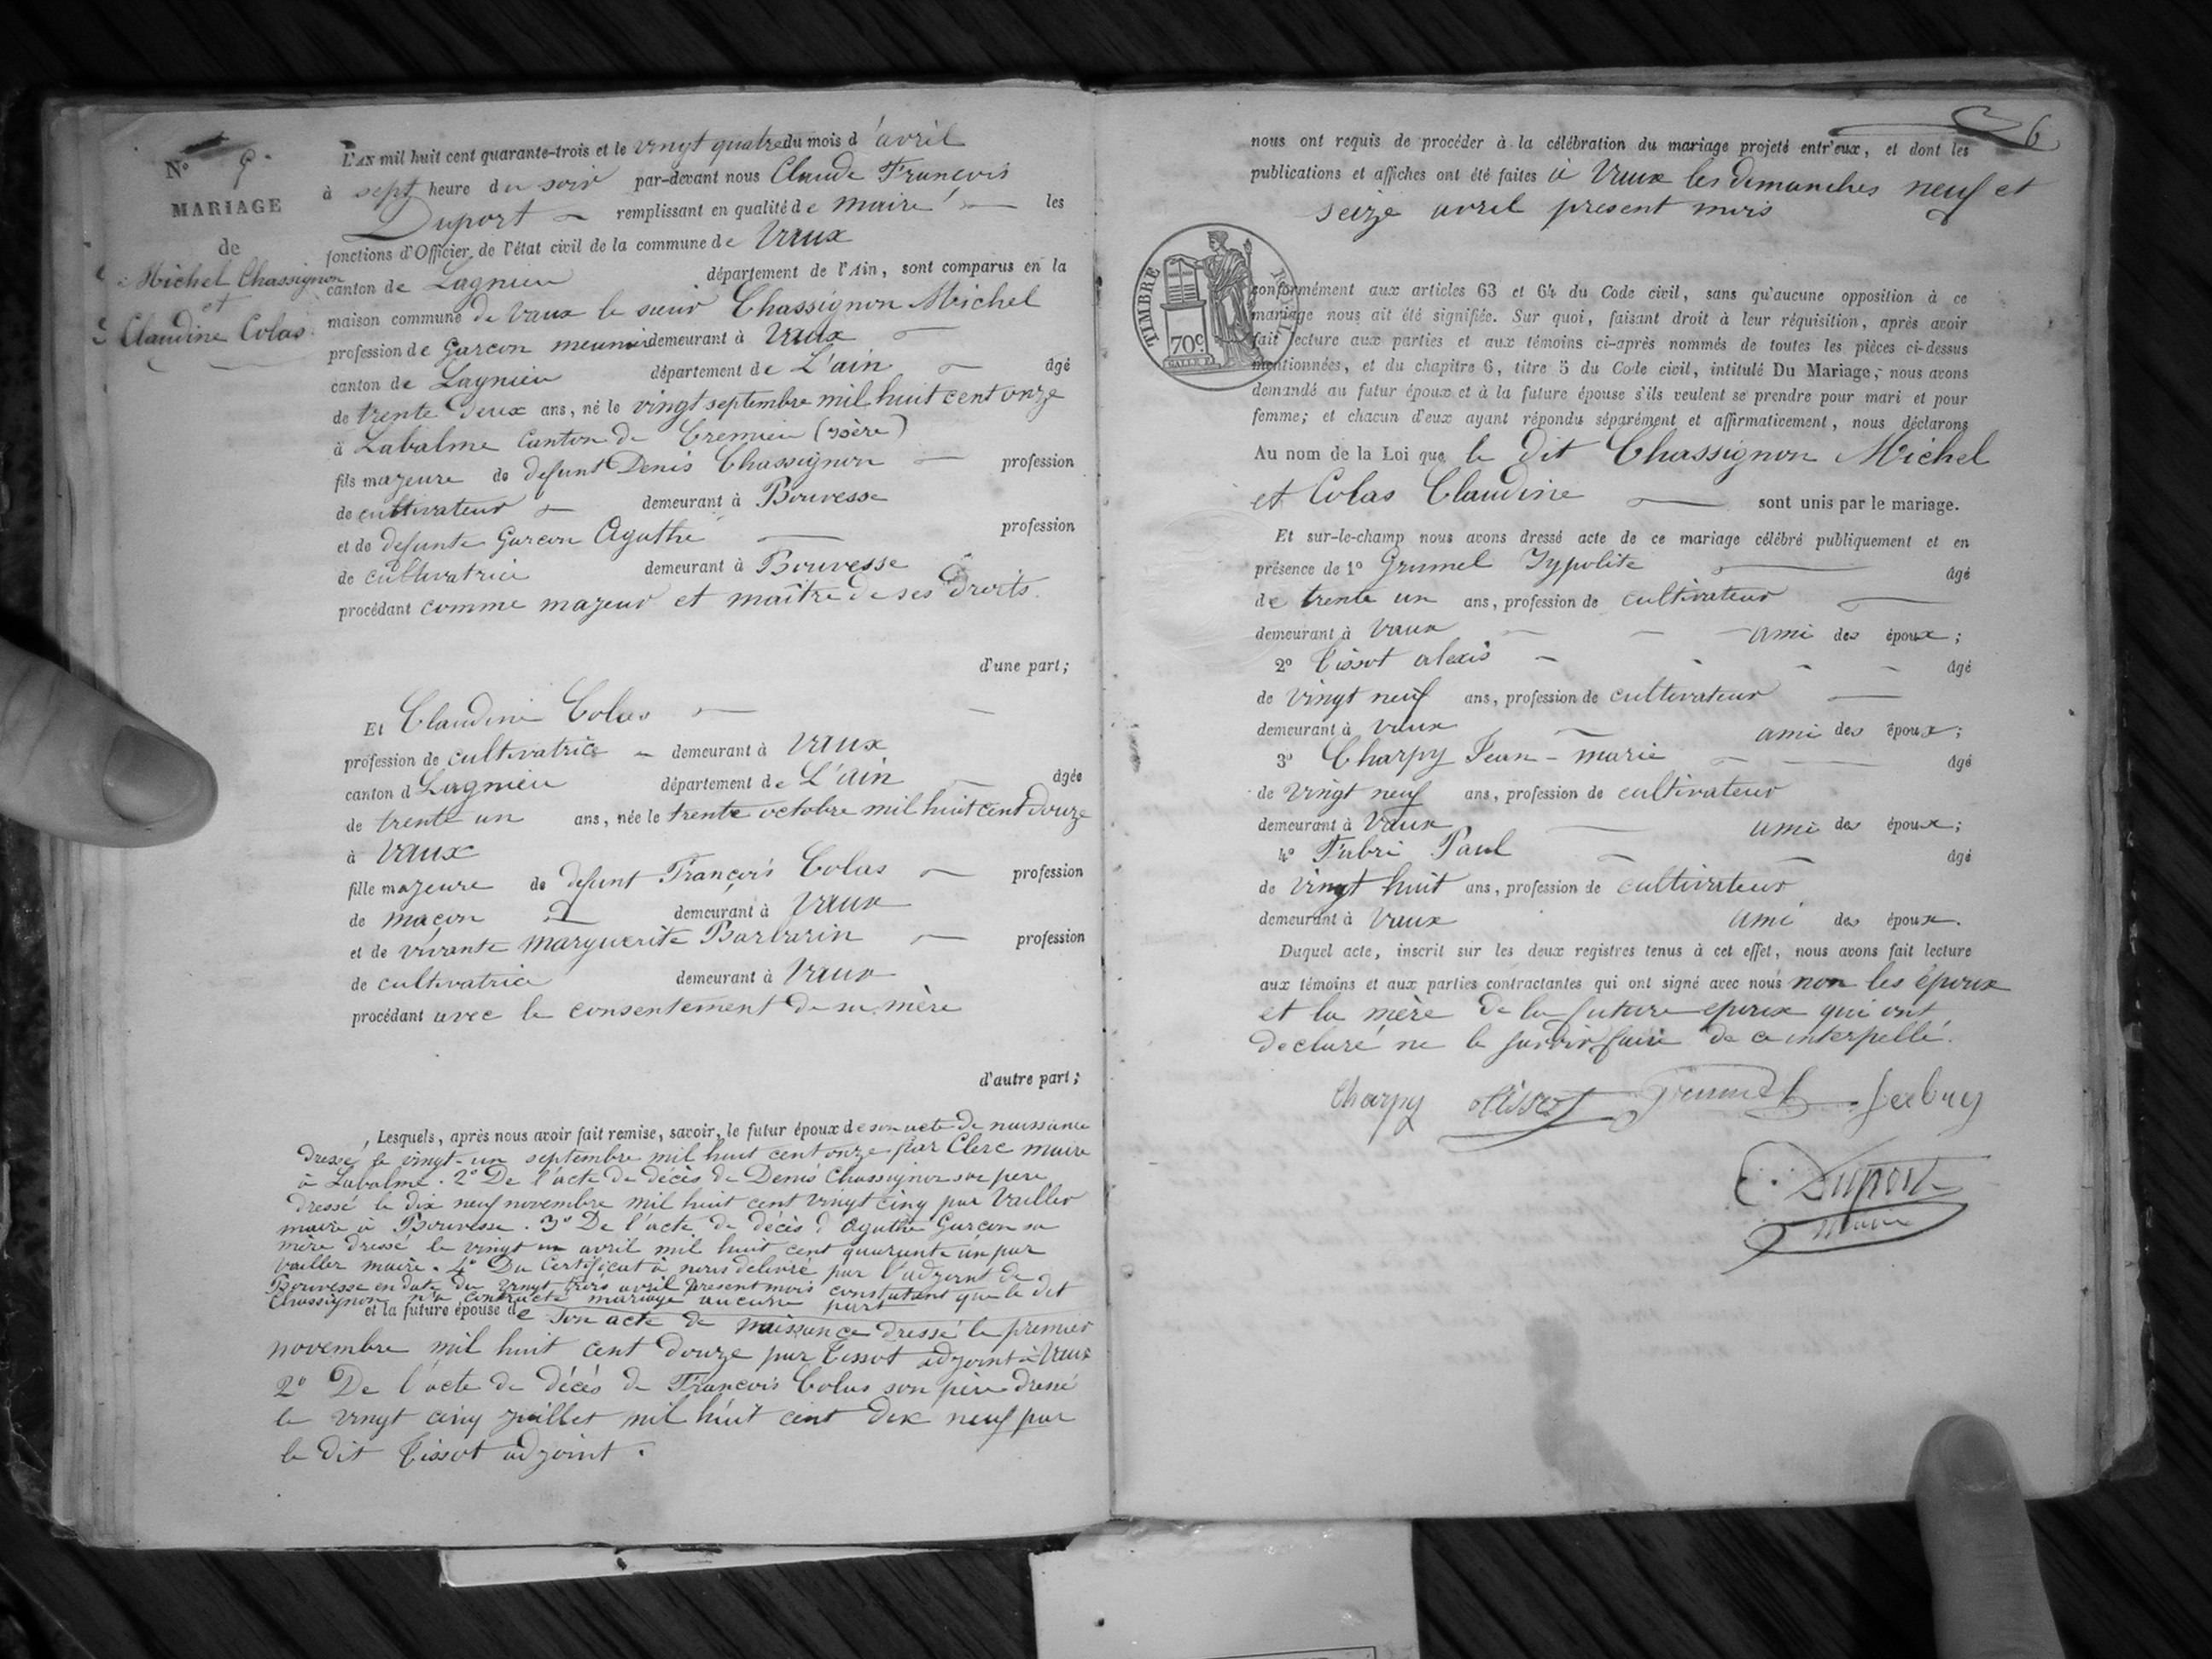 N° 9.
MARIAGE
de
Michel Chassignon
et
Claudine Colas
L'AN mil huit cent quarante-trois et le vingt quatre du mois d'avril
à sept heure du soir par-devant nous Claude Francois
Duport remplissant en qualité de maire les
fonctions d'Officier de l'état civil de la commune de Vaux
canton de Lagnieu département de l'Ain, sont comparus en la
maison commune de Vaux le sieur Chassignon Michel
profession de Garcon meunier demeurant à Vaux
canton de Lagnieu département de L'ain âgé
de trente deux ans, né le vingt septembre mil huit cent onze
à Labalme Canton de Cremieu (isère)
fils majeure de defunt Denis Chassignon profession
de cultivateur demeurant à Bouvesse
et de defunte Garcon Agathe profession
de cultivatrice demeurant à Bouvesse
procédant comme majeur et maître de ses Droits.
d'une part;
Et Claudine Colas
profession de cultivatrice demeurant à Vaux
canton d Lagnieu département de L'ain âgée
de trente un ans, née le trente octobre mil huit cent douze
à Vaux
fille majeure de defunt François Colas profession
de maçon demeurant à Vaux
et de vivante marguerite Barbarin profession
de cultivatrice demeurant à Vaux
procédant avec le consentement de sa mère
d'autre part;
Lesquels, après nous avoir fait remise, savoir, le futur époux de son acte de naissance
dressé le vingt-un septembre mil huit cent onze par Clerc maire
à Labalme. 2° De l'acte de décès de Denis Chassignon son pere
dressé le dix neuf novembre mil huit cent vingt cinq par Vallier
maire à Bouvesse. 3° De l'acte de décès d'Agathe Garcon sa
mère dressé le vingt un avril mil huit cent quarante un par
Vallier maire. 4° Du Certificat à nous delivré par l'adjoint de
Bouvesse en date du vingt trois avril present mois constatant que le dit
Chassignon n'a contracté mariage aucune part
et la future épouse de son acte de naissance dressé le premier
novembre mil huit cent douze par Tissot adjoint à Vaux
2° De l'acte de décès de Francois Colas son père dressé
le vingt cinq juillet mil huit cent dix neuf par
le dit Tissot adjoint.
6
nous ont requis de procéder à la célébration du mariage projeté entr'eux, et dont les
publications et affiches ont été faites à Vaux les dimanches neuf et
seize avril present mois
TIMBRE
70c
conformément aux articles 63 et 64 du Code civil, sans qu'aucune opposition à ce
mariage nous ait été signifiée. Sur quoi, faisant droit à leur réquisition, après avoir
fait lecture aux parties et aux témoins ci-après nommés de toutes les pièces ci-dessus
mentionnées, et du chapitre 6, titre 5 du Code civil, intitulé Du Mariage, nous avons
demandé au futur époux et à la future épouse s'ils veulent se prendre pour mari et pour
femme; et chacun d'eux ayant répondu séparément et affirmativement, nous déclarons
Au nom de la Loi que le dit Chassignon Michel
et Colas Claudine sont unis par le mariage.
Et sur-le-champ nous avons dressé acte de ce mariage célébré publiquement et en
présence de 1° Grumel Typolite âgé
de trente un ans, profession de cultivateur
demeurant à Vaux ami des époux;
2° Tissot alexis âgé
de vingt neuf ans, profession de cultivateur
demeurant à Vaux ami des époux;
3° Charpy Jean-marie âgé
de vingt neuf ans, profession de cultivateur
demeurant à Vaux ami des époux;
4° Fabri Paul âgé
de vingt huit ans, profession de cultivateur
demeurant à Vaux ami des époux.
Duquel acte, inscrit sur les deux registres tenus à cet effet, nous avons fait lecture
aux témoins et aux parties contractantes qui ont signé avec nous non les époux
et la mère de la future epoux qui ont
declaré ne le savoir faire de ce interpellé.
Charpy Tissot Grumel
C. Duport
Maire